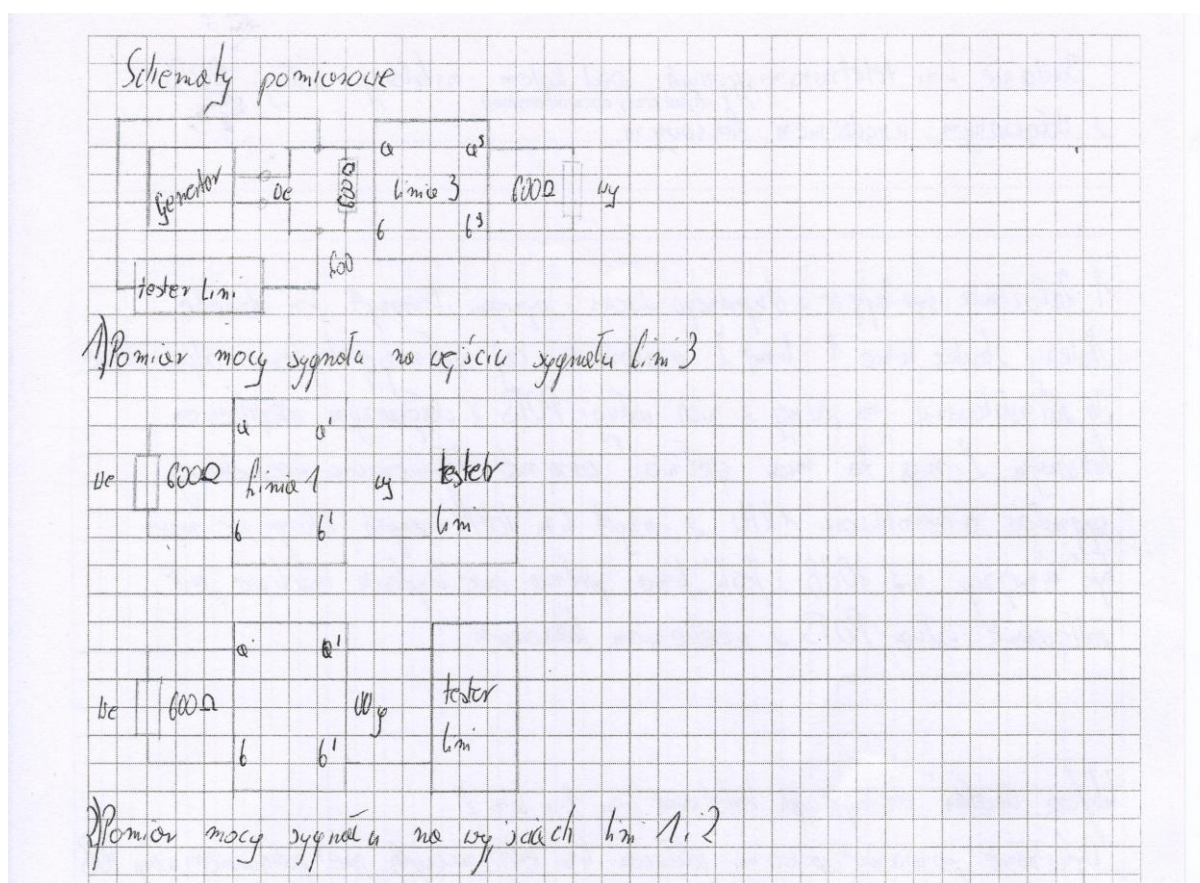 Schematy pomiarowe
a a³
Generator we 600Ω linia 3 600Ω wy
b b³
600
tester lini
1) Pomiar mocy sygnału na wejściu sygnału lini 3
a a'
we 600Ω linia 1 wy tester
lini
b b'
a a'
we 600Ω wy tester
lini
b b'
2) Pomiar mocy sygnału na wyjściach lini 1 i 2